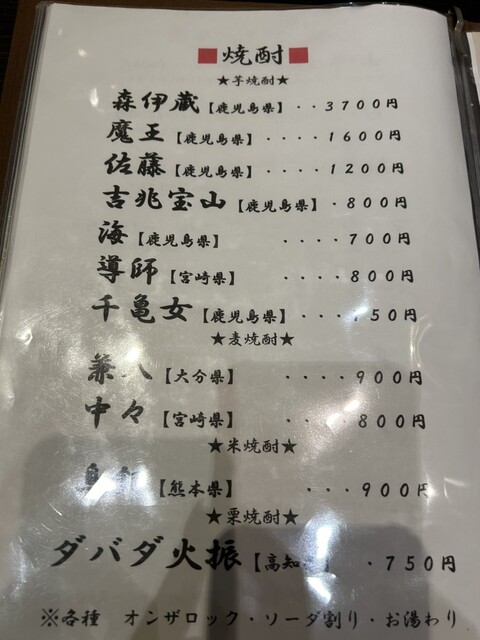 ■焼酎■
★芋焼酎★
森伊蔵【鹿児島県】・・3700円
魔王【鹿児島県】・・・・1600円
佐藤【鹿児島県】・・・・1200円
吉兆宝山【鹿児島県】・800円
海【鹿児島県】・・・・700円
導師【宮崎県】・・・・800円
千亀女【鹿児島県】・・・
★麦焼酎★
兼八【大分県】・・・・900円
中々【宮崎県】・・・800円
★米焼酎★
【熊本県】・・・900円
★栗焼酎★
ダバダ火振【高知県】・750円
※各種 オンザロック・ソーダ割り・お湯わり